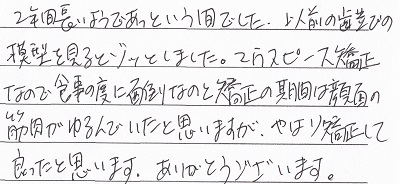 2年間長いようであっという間でした。以前の歯並びの
模型を見るとゾッとしました。マウスピース矯正
なので食事の度に面倒なのと矯正の期間は顔面の
筋肉がゆるんでいたと思いますが、やはり矯正して
良ったと思います。ありがとうございます。